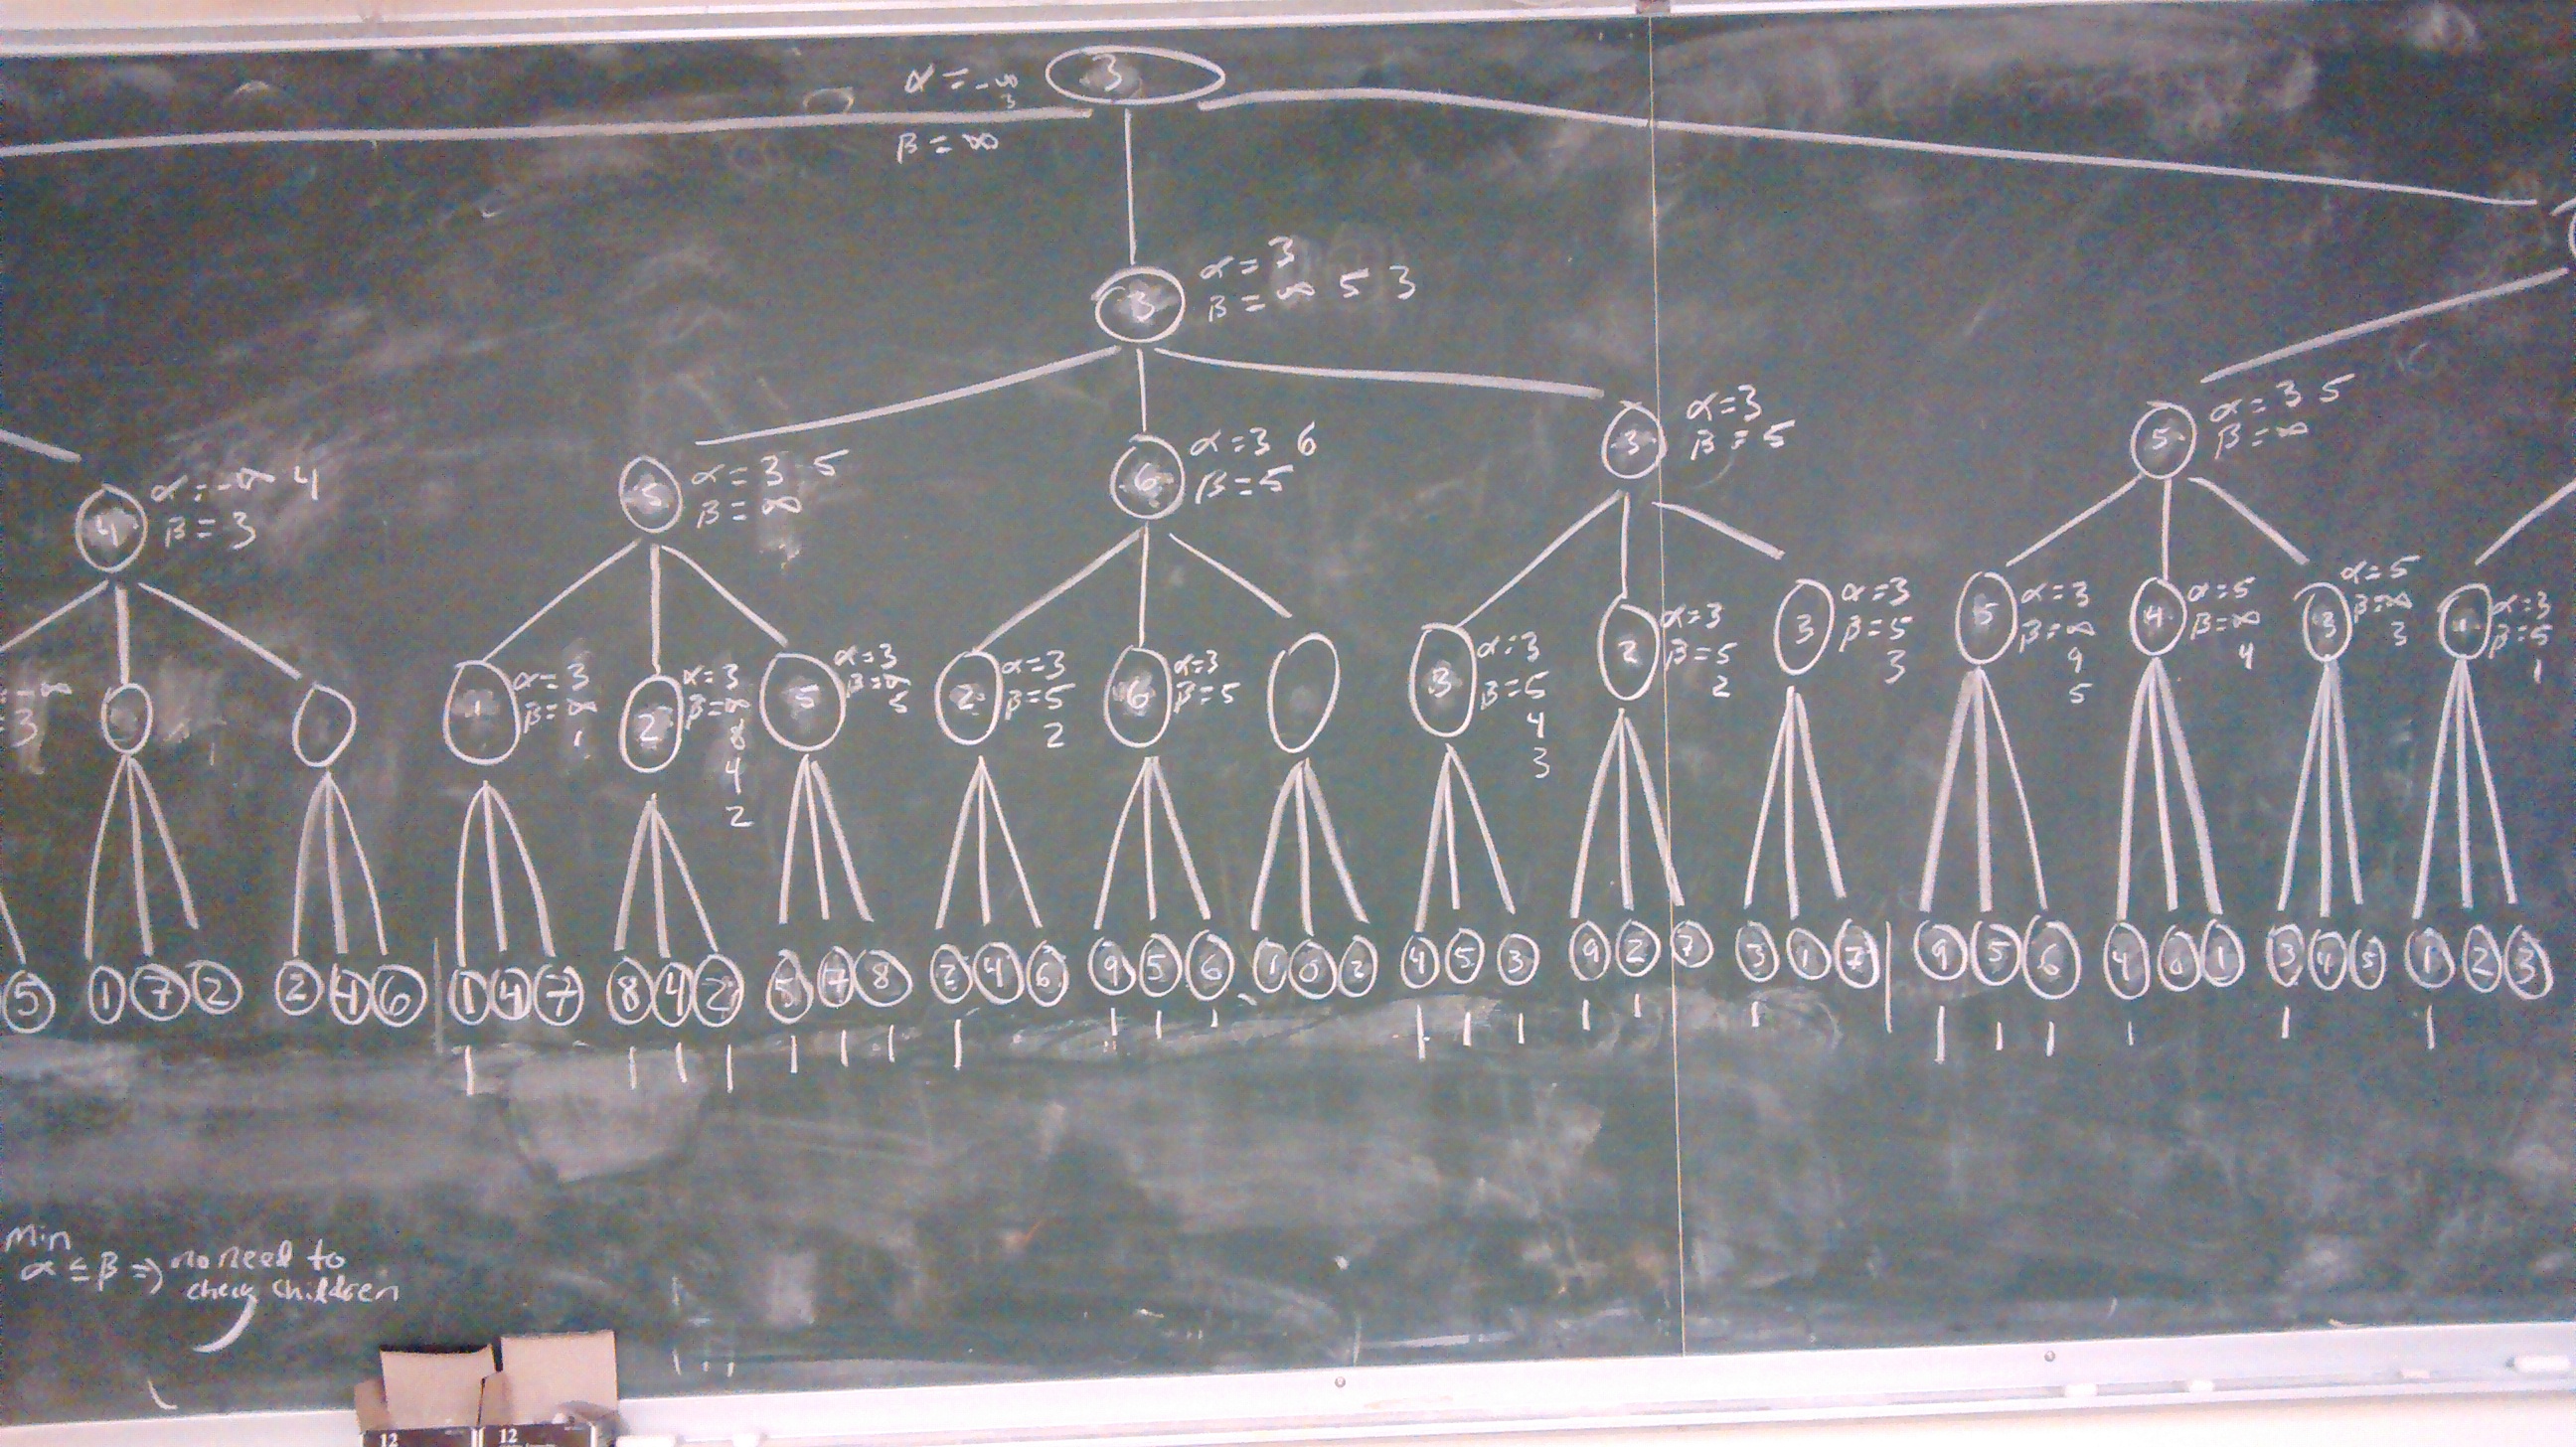 3
α = -∞
3
β = ∞
3
α = 3
β = ∞ 5 3
4
α = -∞ 4
β = 3
5
α = 3 5
β = ∞
6
α = 3 6
β = 5
3
α = 3
β = 5
5
α = 3 5
β = ∞
-∞
3
1
α = 3
β = ∞
1
2
α = 3
β = ∞
8
4
2
5
α = 3
β = ∞
5
2
α = 3
β = 5
2
6
α = 3
β = 5
3
α = 3
β = 5
4
3
2
α = 3
β = 5
2
3
α = 3
β = 5
3
5
α = 3
β = ∞
9
5
4
α = 5
β = ∞
4
3
α = 5
β = ∞
3
1
α = 3
β = 5
1
5 1 7 2 2 4 6 1 4 7 8 4 2 5 7 8 2 4 6 9 5 6 1 0 2 4 5 3 9 2 7 3 1 7 9 5 6 4 0 1 3 4 5 1 2 3
Min
α ≤ β ⇒ no need to
check children
12 12